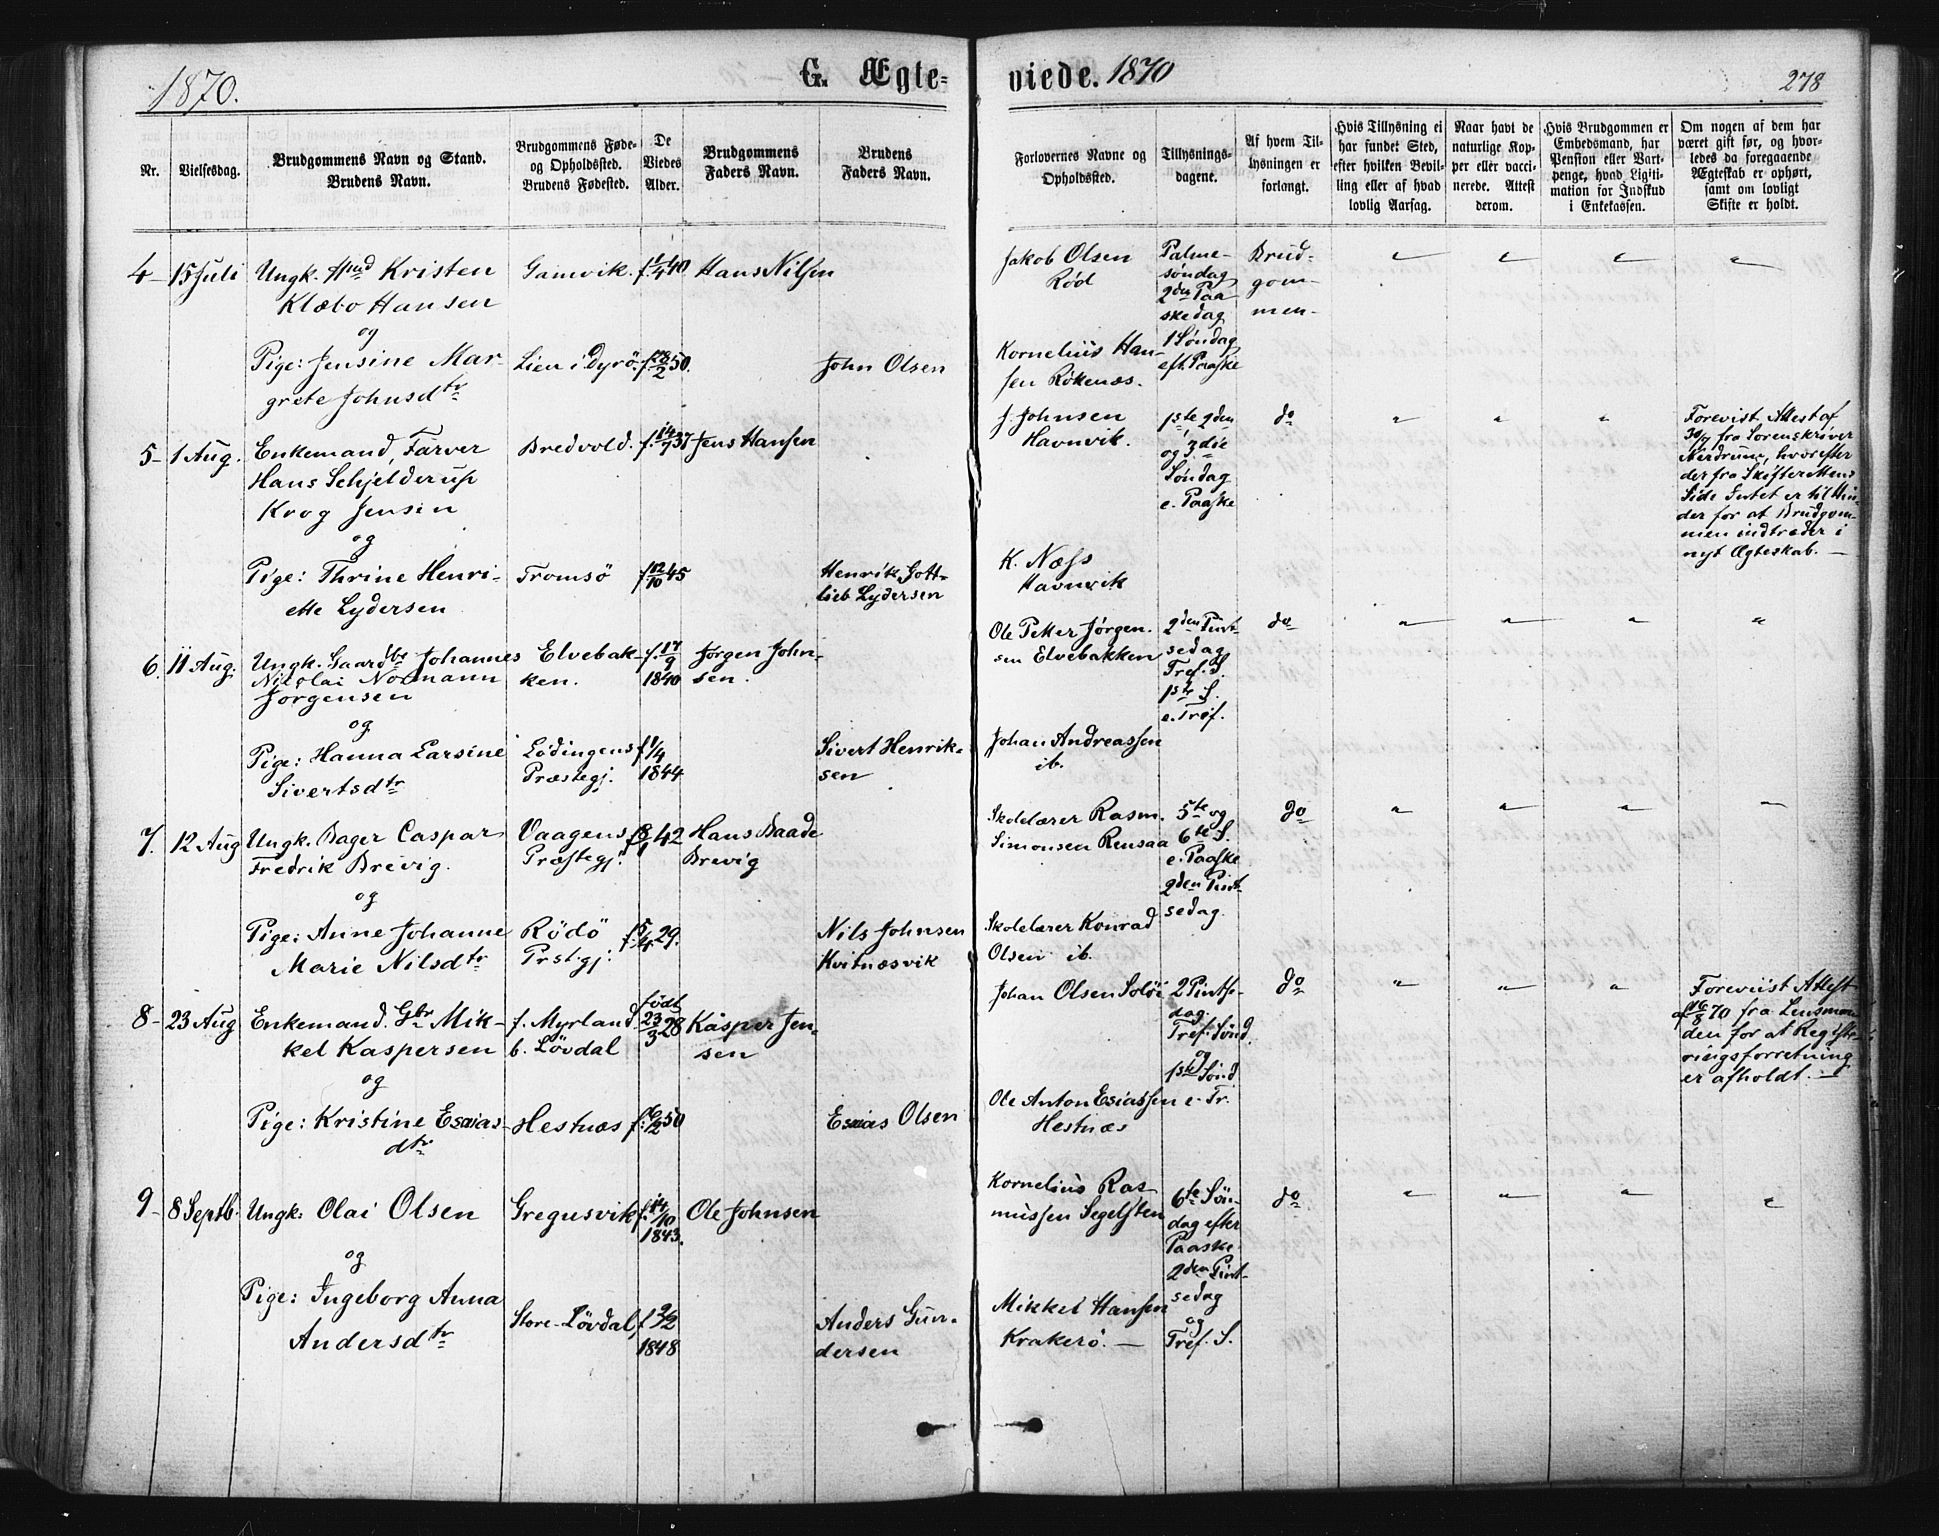 1870.
G. Ægte-
viede. 1870
278
Nr.
Vielsesdag.
Brudgommens Navn og Stand.
Brudens Navn.
Brudgommens Føde-
og Opholdssted.
Brudens Fødested.
De
Viedes
Alder.
Brudgommens
Faders Navn.
Brudens
Faders Navn.
Forlovernes Navne og
Opholdssted.
Tillysnings-
dagene.
Af hvem Til-
lysningen er
forlangt.
Hvis Tillysning ei
har fundet Sted,
efter hvilken Bevil-
ling eller af hvad
lovlig Aarsag.
Naar havt de
naturlige Kop-
per eller vacci-
nerede. Attest
derom.
Hvis Brudgommen er
Embedsmand, har
Pension eller Vart-
penge, hvad Ligiti-
mation for Indskud
i Enkekassen.
Om nogen af dem har
været gift før, og hvor-
ledes da foregaaende
Ægteskab er ophørt,
samt om lovligt
Skifte er holdt.
4- 15 Juli Ungk. Kristen
Klæbo Hansen
og
Pige: Jensine Mar-
grete Johnsdtr
Gamvik. f. 1/4 40 Hans Nilsen
Lien i Dyrö. f. 28/2 50.
John Olsen
Jakob Olsen
Röd
Kornelius Han-
sen Rökenæs.
Palme-
söndag
2den Paa
skedag
1 Söndag
eft. Paaske
Brud-
gom-
men-
5- 1 Aug. Enkemand, Farver
Hans Schjelderup
Krog Jensen
og
Pige: Thrine Henri-
ette Lydersen
Bredvold. f. 14/7 37 Jens Hansen
Tromsö f 12/10 45
Henrik Gott-
lieb Lydersen
J. Johnsen
Havnvik.
K. Næss
Havnvik
1ste, 2den
og 3die
Söndag
e. Paaske
do
Forevist Attest af
30/7 fra Sorenskriver
Nerdrum, hvorefter
der fra Skifterettens
Side Intet er til Hin-
der for at Brudgom-
men indtræder i
nyt Ægteskab. -
6. 11 Aug. Ungk. Gaardbr Johannes
Nicolai Normann
Jörgensen
og
Pige: Hanna Larsine
Sivertsdtr
Elvebak-
ken.
f. 17/9
1840
Jörgen John-
sen.
Lödingens
Præstegj.
f 1/4
1844
Sivert Henrik-
sen
Ole Petter Jörgen-
sen Elvebakken
Johan Andreassen
ib.
2den Pint-
sedag
Tref. S.
1ste S.
e. Tref.
do
7. 12 Aug Ungk. Bager Caspar
Fredrik Brevig.
og
Pige: Anne Johanne
Marie Nilsdtr
Vaagens
Præstegj.
f 8/1 42 Hans Baade
Brevig
Rödö
Prstgj.
f. 5/4 29.
Nils Johnsen
Kvitnæsvik
Skolelærer Rasm.
Simonsen Rensaa
Skolelærer Konrad
Olsen ib.
5te og
6te S.
e. Paaske
2den Pint-
sedag.
do
8- 23 Aug Enkemand. Gbr Mik-
kel Kaspersen
og
Pige: Kristine Esaias-
dtr
f. Myrland.
b. Lövdal
födt
23/3 28 Kasper Jen-
sen
Hestnæs f. 6/2 50
Esaias Olsen
Johan Olsen Solöi
Ole Anton Esiassen
Hestnæs
2 Pintse-
dag.
Tref. Sönd.
og
1ste Sönd
e. Tr.
do
Foreviist Attest
af 16/8 70 fra Lensman-
den for at Registe-
ringsforretning
er afholdt. -
9- 8 Septb. Ungk: Olai Olsen
og
Pige: Ingeborg Anna
Andersdtr
Gregusvik f. 14/10
1843.
Ole Johnsen
Store-Lövdal, f 9/2
1848
Anders Gun-
dersen
Kornelius Ras-
mussen Segelsten
Mikkel Hansen
Krakerö. -
6te Sön-
dag efter
Paaske
2den Pint-
sedag
og
Tref. S.
do